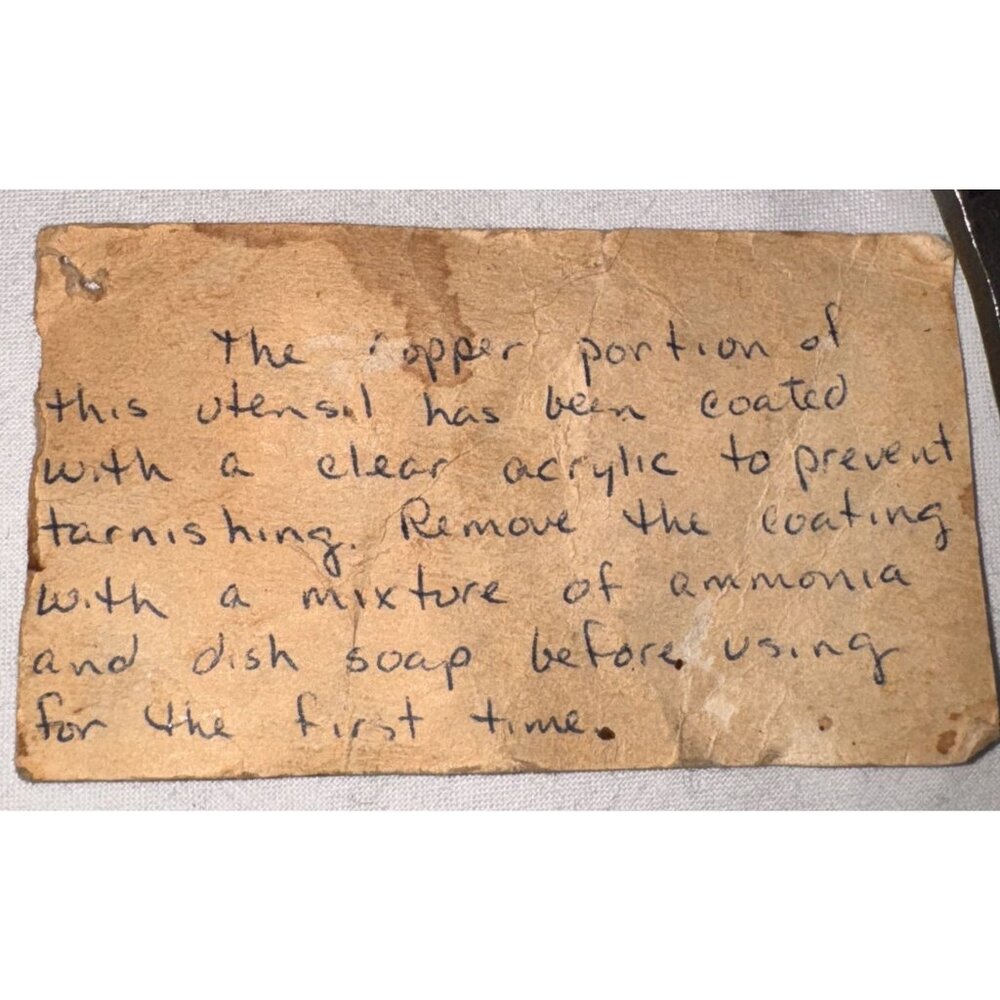 The copper portion of
this utensil has been coated
with a clear acrylic to prevent
tarnishing. Remove the coating
with a mixture of ammonia
and dish soap before using
for the first time.